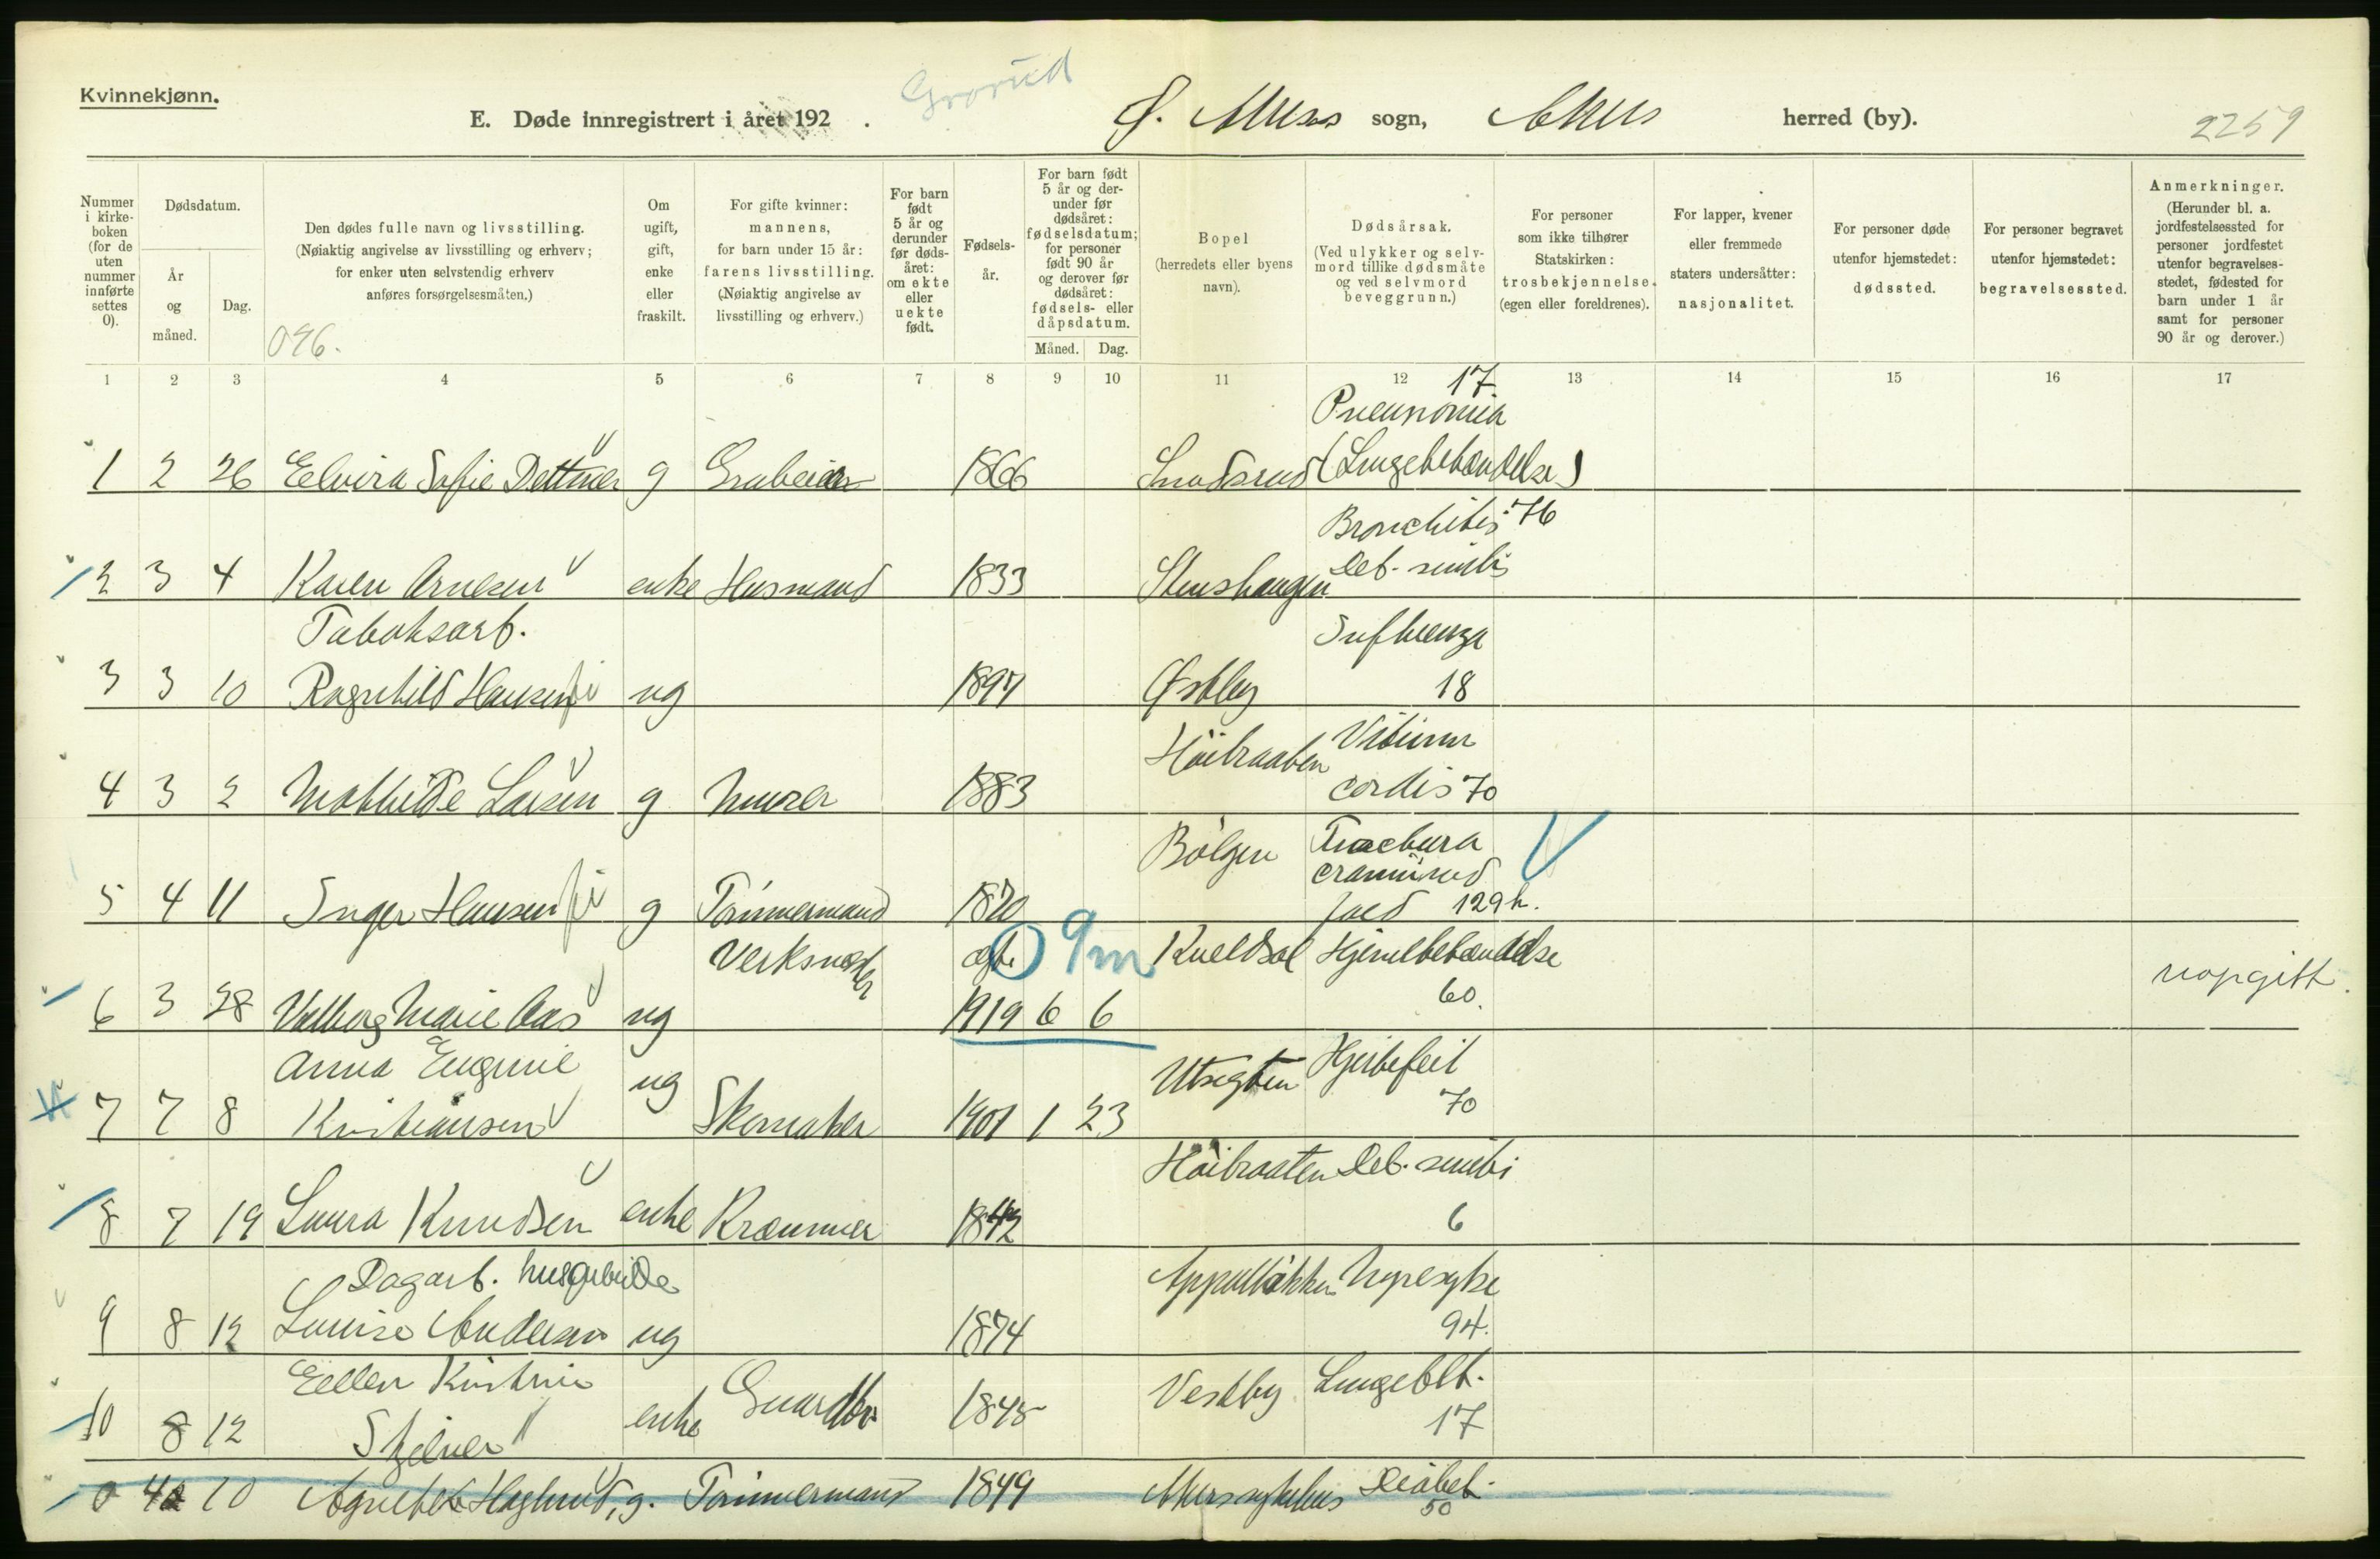 Kvinnekjønn.
Grorud
E. Døde innregistrert i året 192 .
Ø. Akers sogn, Akers herred (by).
2259
Nummer i kirke-boken (for de uten nummer innførte settes 0).
Dødsdatum.
År og måned.
Dag.
Den dødes fulle navn og livsstilling.
(Nøiaktig angivelse av livsstilling og erhverv; for enker uten selvstendig erhverv anføres forsørgelsesmåten.)
096.
Om ugift, gift, enke eller fraskilt.
For gifte kvinner: mannens, for barn under 15 år: farens livsstilling. (Nøiaktig angivelse av livsstilling og erhverv.)
For barn født 5 år og derunder før døds-året: om ekte eller uekte født.
Fødsels-år.
For barn født 5 år og der-under før dødsåret: fødselsdatum; for personer født 90 år og derover før dødsåret: fødsels- eller dåpsdatum.
Måned. Dag.
Bopel (herredets eller byens navn).
Dødsårsak. (Ved ulykker og selv-mord tillike dødsmåte og ved selvmord beveggrunn.)
For personer som ikke tilhører Statskirken: trosbekjennelse. (egen eller foreldrenes).
For lapper, kvener eller fremmede staters undersåtter: nasjonalitet.
For personer døde utenfor hjemstedet: dødssted.
For personer begravet utenfor hjemstedet: begravelsessted.
Anmerkninger. (Herunder bl. a. jordfestelsessted for personer jordfestet utenfor begravelses-stedet, fødested for barn under 1 år samt for personer 90 år og derover.)
1 2 3 4 5 6 7 8 9 10 11 12 13 14 15 16 17
17
Pneumonia
1 2 26 Elvira Sofie Dettmer g Grubeier 1866 (Lungebetændelse)
Bronchitis 76
2 3 4 Karen Arnesen enke Husmand 1833 Stenshaugen Deb. senilis
Tobaksarb. Influenza
3 3 10 Ragnhild Hansen ug 1897 Østby 18
Høibraaten Vitium
4 3 2 Mathilde Larsen g Murer 1883 cordis 70
Bølgen Fractura
cranii
5 4 11 Inger Hansen g Tømmermand 1870 129 h.
Verksmester ægte 9 m Hjernebetændelse
6 3 28 Valborg Marie Aas ug 1919 6 6 60. uopgitt.
Anna Eugenie ug Utsigten Hjertefeil
7 7 8 Kristiansen Skomaker 1901 1 23 70
Høibraaten Deb. senilis
8 7 19 Laura Knudsen enke Kræmmer 1842 6
Dagarb. husgjerning Nyresyke
9 8 12 Louise Andersen ug 1874 94.
Ellen Kristine Vestby Lungebet.
10 8 12 enke Gaardbr 1845 17
0 4 10 Haglund, g. Tømmermand 1849 Akers sykehus Diabet. 50